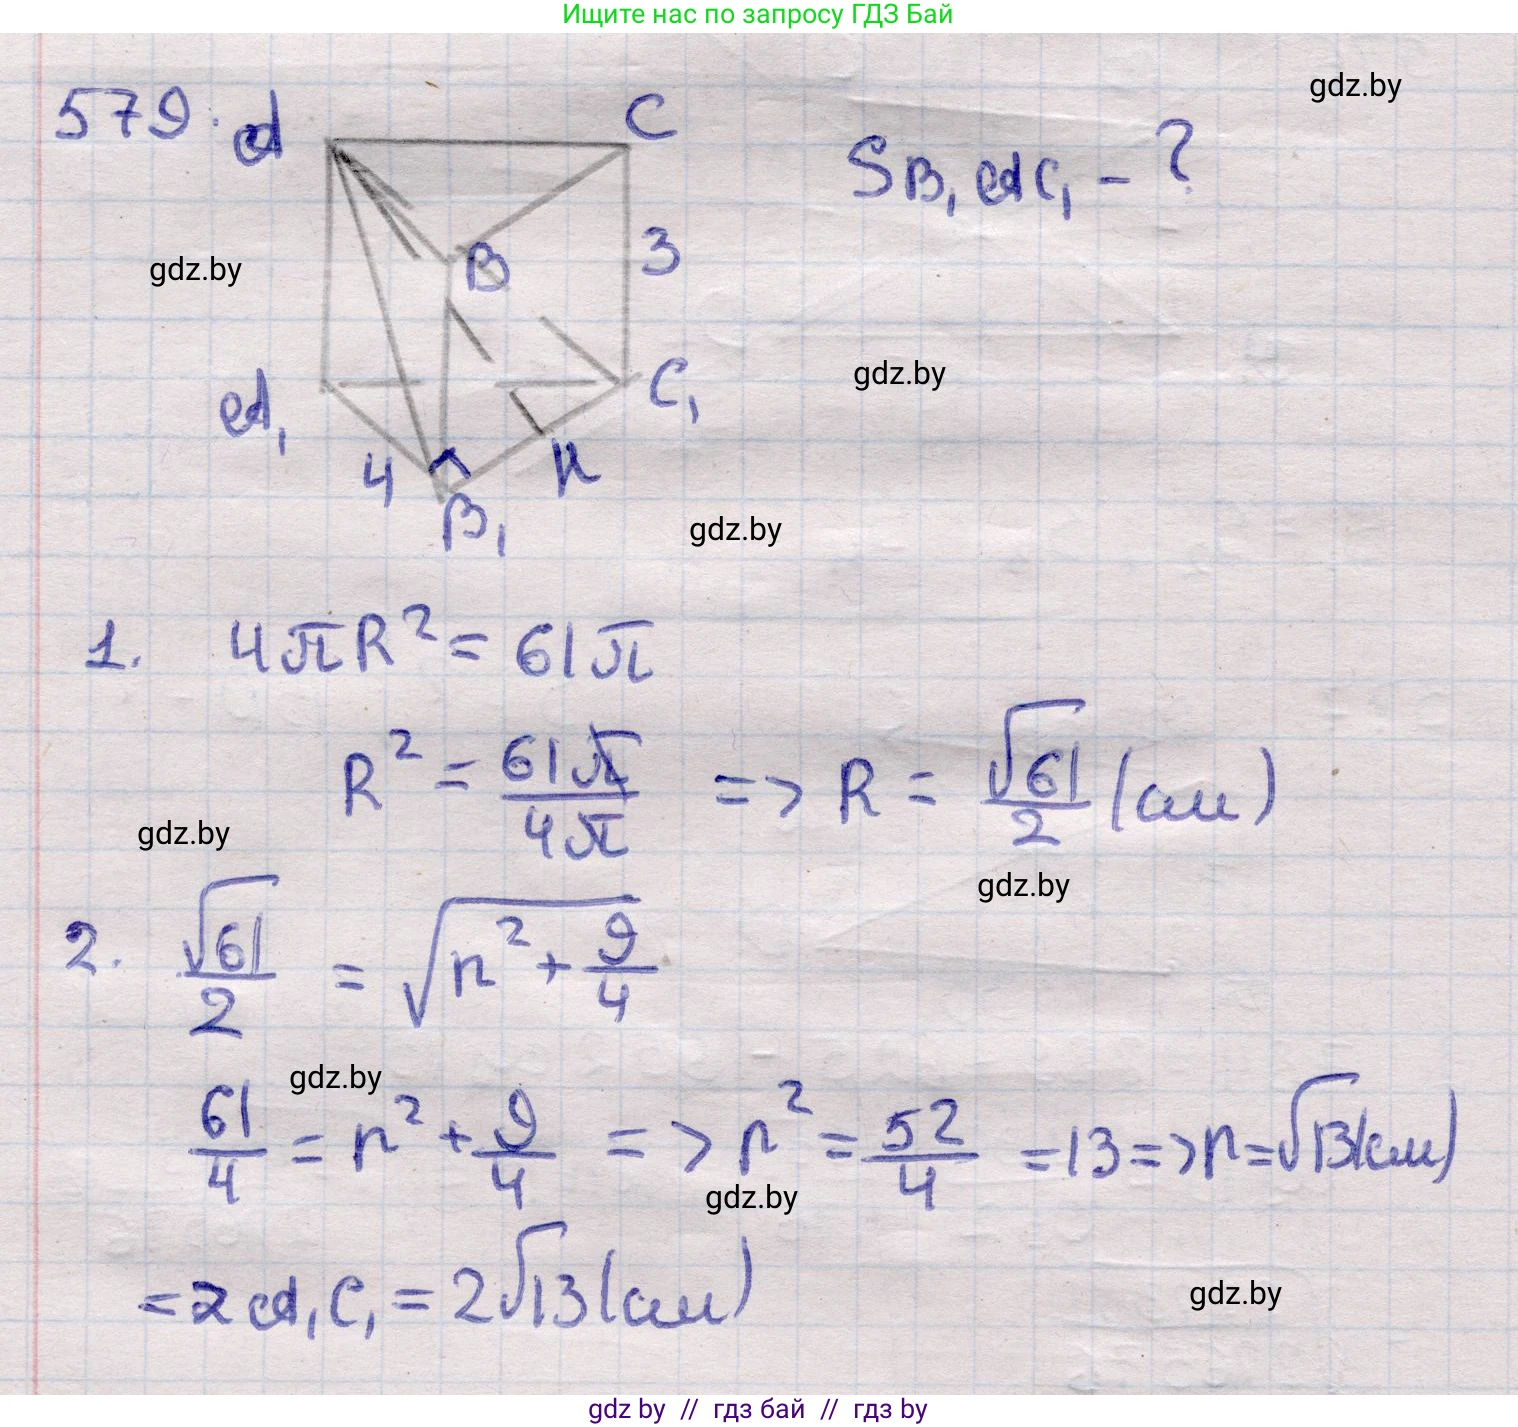 Ищите нас по запросу ГДЗ Бай
579.
A
C
gdz.by
S B₁AC₁ - ?
gdz.by
B
3
gdz.by
A₁
C₁
4
K
B₁
gdz.by
1. 4πR² = 61π
R² = 61π/4π => R = √61/2 (см)
gdz.by
gdz.by
2. √61/2 = √(r² + 9/4)
gdz.by
61/4 = r² + 9/4 => r² = 52/4 = 13 => r = √13 (см)
gdz.by
=> A₁C₁ = 2√13 (см)
gdz.by
gdz by // гдз бай // гдз by